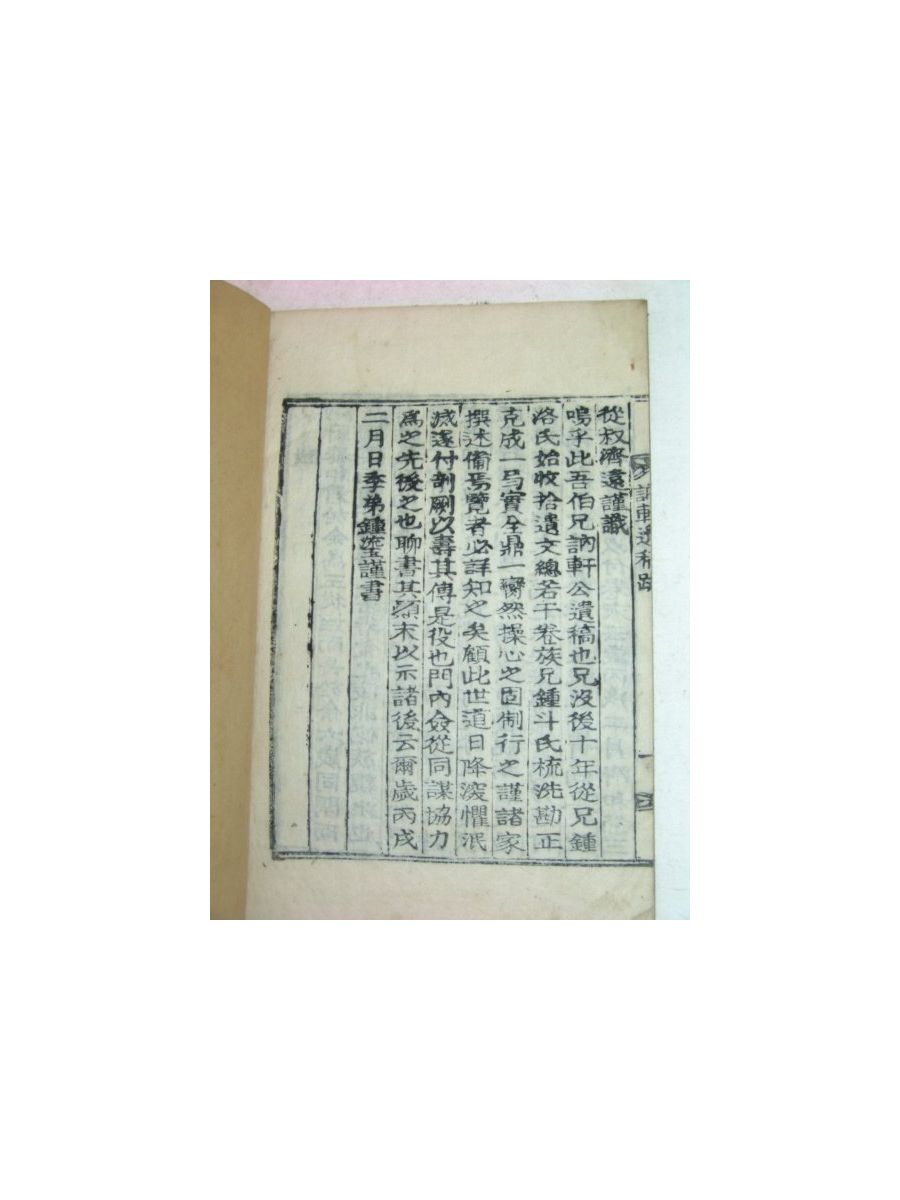 訥軒遺稿跋
從叔濟遠謹識
嗚乎此吾伯兄訥軒公遺稿也兄沒後十年從兄鍾
洛氏始收拾遺文總若干卷族兄鍾斗氏梳洗勘正
克成一馬實全鼎一臠然操心之固制行之謹諸家
撰述備焉覽者必詳知之矣顧此世道日降深懼泯
滅遂付剞劂以壽其傳是役也門內僉從同謀協力
爲之先後之也聊書其顚末以示諸後云爾歲丙戌
二月日季弟鍾瑩謹書